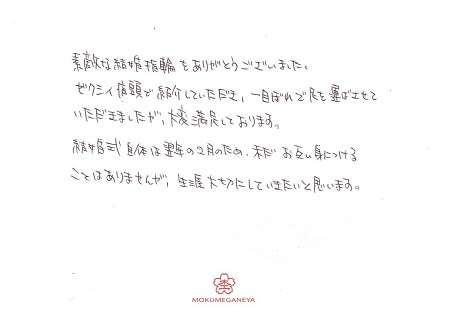 素敵な結婚指輪をありがとうございました。
ゼクシィ店頭で紹介していただき、一目ぼれで足を運ばさせて
いただきましたが、大変満足しております。
結婚式自体は翌年の2月のため、未だお互い身につける
ことはありませんが、生涯大切にしていきたいと思います。
MOKUMEGANEYA